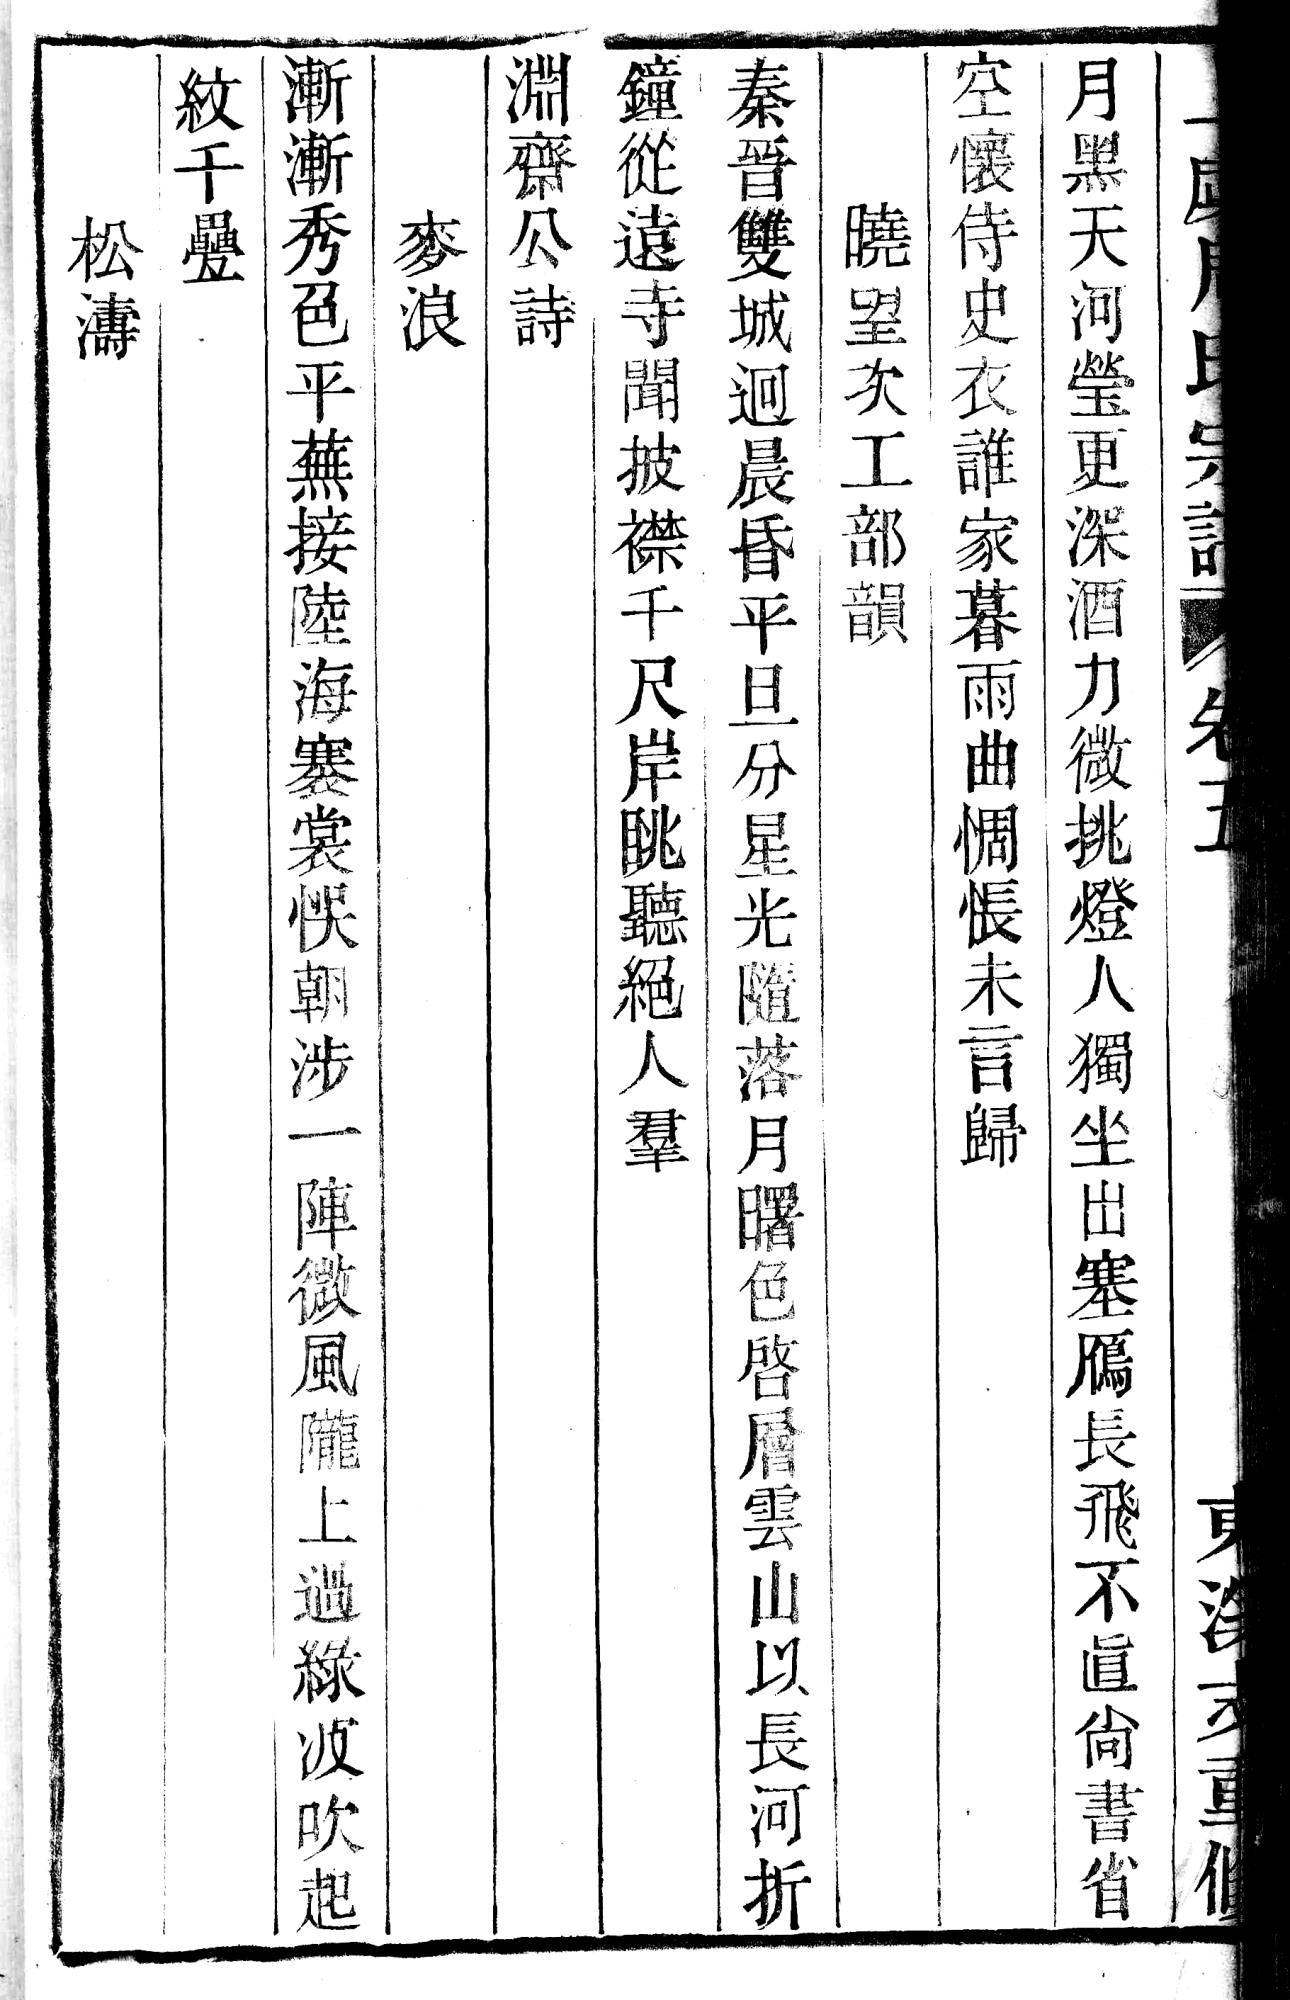 氏宗譜 卷五 重修
月黑天河瑩更深酒力微挑燈人獨坐出塞鴈長飛不直尙書省
空懷侍史衣誰家暮雨曲惆悵未言歸
曉望次工部韻
秦晉雙城迥晨昏平旦分星光隨落月曙色啓層雲山以長河折
鐘從遠寺聞披襟千尺岸眺聽絕人羣
淵齋公詩
麥浪
漸漸秀色平蕪接陸海褰裳怳朝涉一陣微風隴上過綠波吹起
紋千疊
松濤